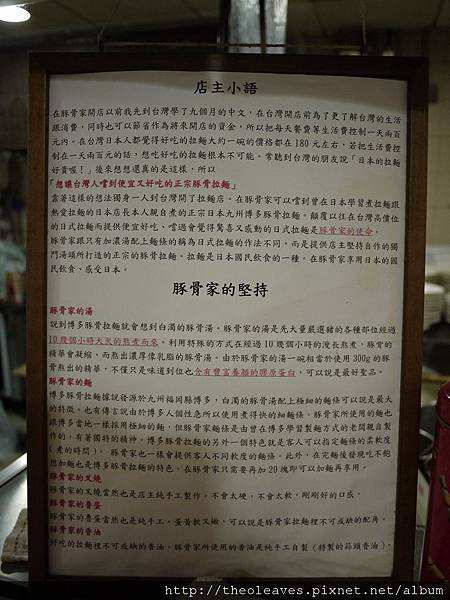 店主小語
在豚骨家開店以前我先到台灣學了九個月的中文，在台灣開店前為了更了解台灣的生活
跟消費，同時也可以節省作為將來開店的資金，所以把每天餐費等生活費控制一天兩百
元內。在台灣日本人都覺得好吃的拉麵大約一碗的價格都在180元左右，若把生活費控
制在一天兩百元的話，想吃好吃的拉麵根本不可能。常聽到台灣的朋友說「日本的拉麵
好貴喔！」後來想想還真的是這樣，所以
「想讓台灣人嚐到便宜又好吃的正宗豚骨拉麵」
靠著這樣的想法獨身一人到台灣開了拉麵店。在豚骨家可以嚐到曾在日本學習煮拉麵跟
熱愛拉麵的日本店長本人親自煮的正宗日本九州博多豚骨拉麵。顛覆以往在台灣高價位
的日式拉麵而提供便宜好吃、嚐過會覺得驚喜又感動的日式拉麵是豚骨家的使命。
豚骨家跟只有加濃湯配上麵條的稱為日式拉麵的作法不同，而是提供店主堅持自作的獨
門湯頭所打造的正宗的豚骨拉麵。拉麵是日本國民飲食的一種。在豚骨家享用日本的國
民飲食、感受日本。
豚骨家的堅持
豚骨家的湯
說到博多豚骨拉麵就會想到白濁的豚骨湯。豚骨家的湯是先大量嚴選豬的各種部位經過
10幾個小時大火的熬煮而來。利用特殊的方式在經過10幾個小時的漫長熬煮，豚骨的
精華會凝縮，而熬出濃厚像乳脂的豚骨湯。由於豚骨家的湯一碗相當於使用300g的豚
骨熬出的精華，不僅只是味道到位也含有豐富養顏的膠原蛋白，可以說是最好聖品。
豚骨家的麵
博多豚骨拉麵據說發源於九州福岡縣博多，白濁的豚骨湯配上極細的麵條可以說是最大
的特徵。也有傳言說由於博多人個性急所以使用煮得快的細麵條。豚骨家所使用的麵也
跟博多當地一樣採用極細的麵，但豚骨家麵條是由曾在博多學習製麵方式的老闆親自製
作的，有著獨特的精神。博多豚骨拉麵的另外一個特色就是客人可以指定麵條的柔軟度
(煮的時間)。豚骨家也一樣會提供客人不同軟度的麵條。此外，在完麵後發現吃不飽
想加麵也是博多豚骨拉麵的特色。在豚骨家只需要再加20塊即可以加麵再享用。
豚骨家的叉燒
豚骨家的叉燒當然也是店主純手工製作。不會太硬、不會太軟，剛剛好的口感。
豚骨家的魯蛋
豚骨家的魯蛋當然也是純手工。蛋黃軟又嫩，可以說是豚骨家拉麵裡不可或缺的配角。
豚骨家的香油
好吃的拉麵裡不可或缺的香油。豚骨家所使用的香油是純手工自製（特製的蒜頭香油）。
http://theoleaves.pixnet.net/album